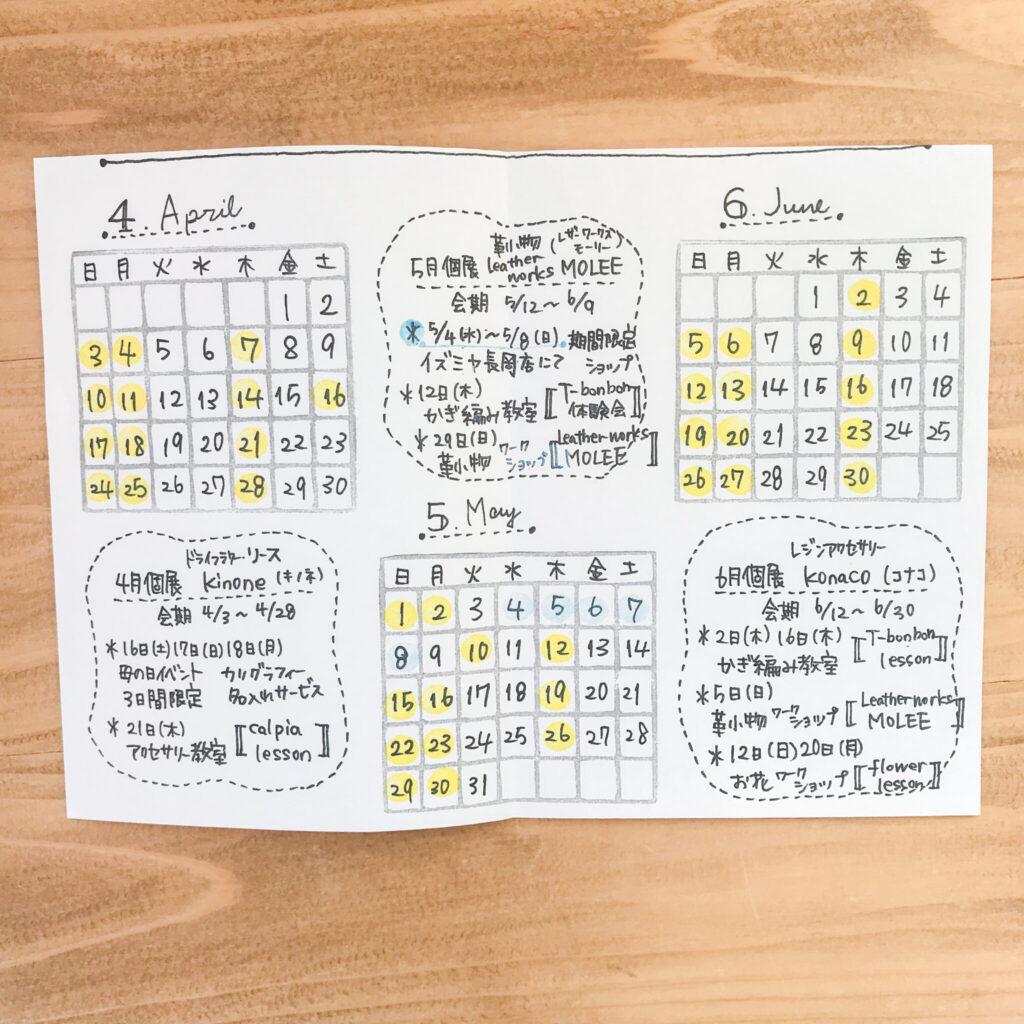 4. April.
日 月 火 水 木 金 土
1 2
3 4 5 6 7 8 9
10 11 12 13 14 15 16
17 18 19 20 21 22 23
24 25 26 27 28 29 30
ドライフラワーリース
4月個展 kinone (キノネ)
会期 4/3〜4/28
*16日(土)17日(日)18日(月)
母の日イベント カリグラフィー
3日間限定 名入れサービス
*21日(木)
アクセサリー教室 [calpia lesson]
革小物 (レザーワークス モーリー)
5月個展 Leather works MOLEE
会期 5/12〜6/9
*5/4(水)〜5/8(日). 期間限定
イズミヤ長岡店にて ショップ
*12日(木)
かぎ編み教室 [T-bonbon 体験会]
*29日(日)
革小物 ワークショップ [Leather works MOLEE]
5. May.
日 月 火 水 木 金 土
1 2 3 4 5 6 7
8 9 10 11 12 13 14
15 16 17 18 19 20 21
22 23 24 25 26 27 28
29 30 31
6. June.
日 月 火 水 木 金 土
1 2 3 4
5 6 7 8 9 10 11
12 13 14 15 16 17 18
19 20 21 22 23 24 25
26 27 28 29 30
レジンアクセサリー
6月個展 konaco (コナコ)
会期 6/12〜6/30
*2日(木) 16日(木)
かぎ編み教室 [T-bonbon lesson]
*5日(日)
革小物 ワークショップ [Leather works MOLEE]
*12日(日)20日(月)
お花 ワークショップ [flower lesson]